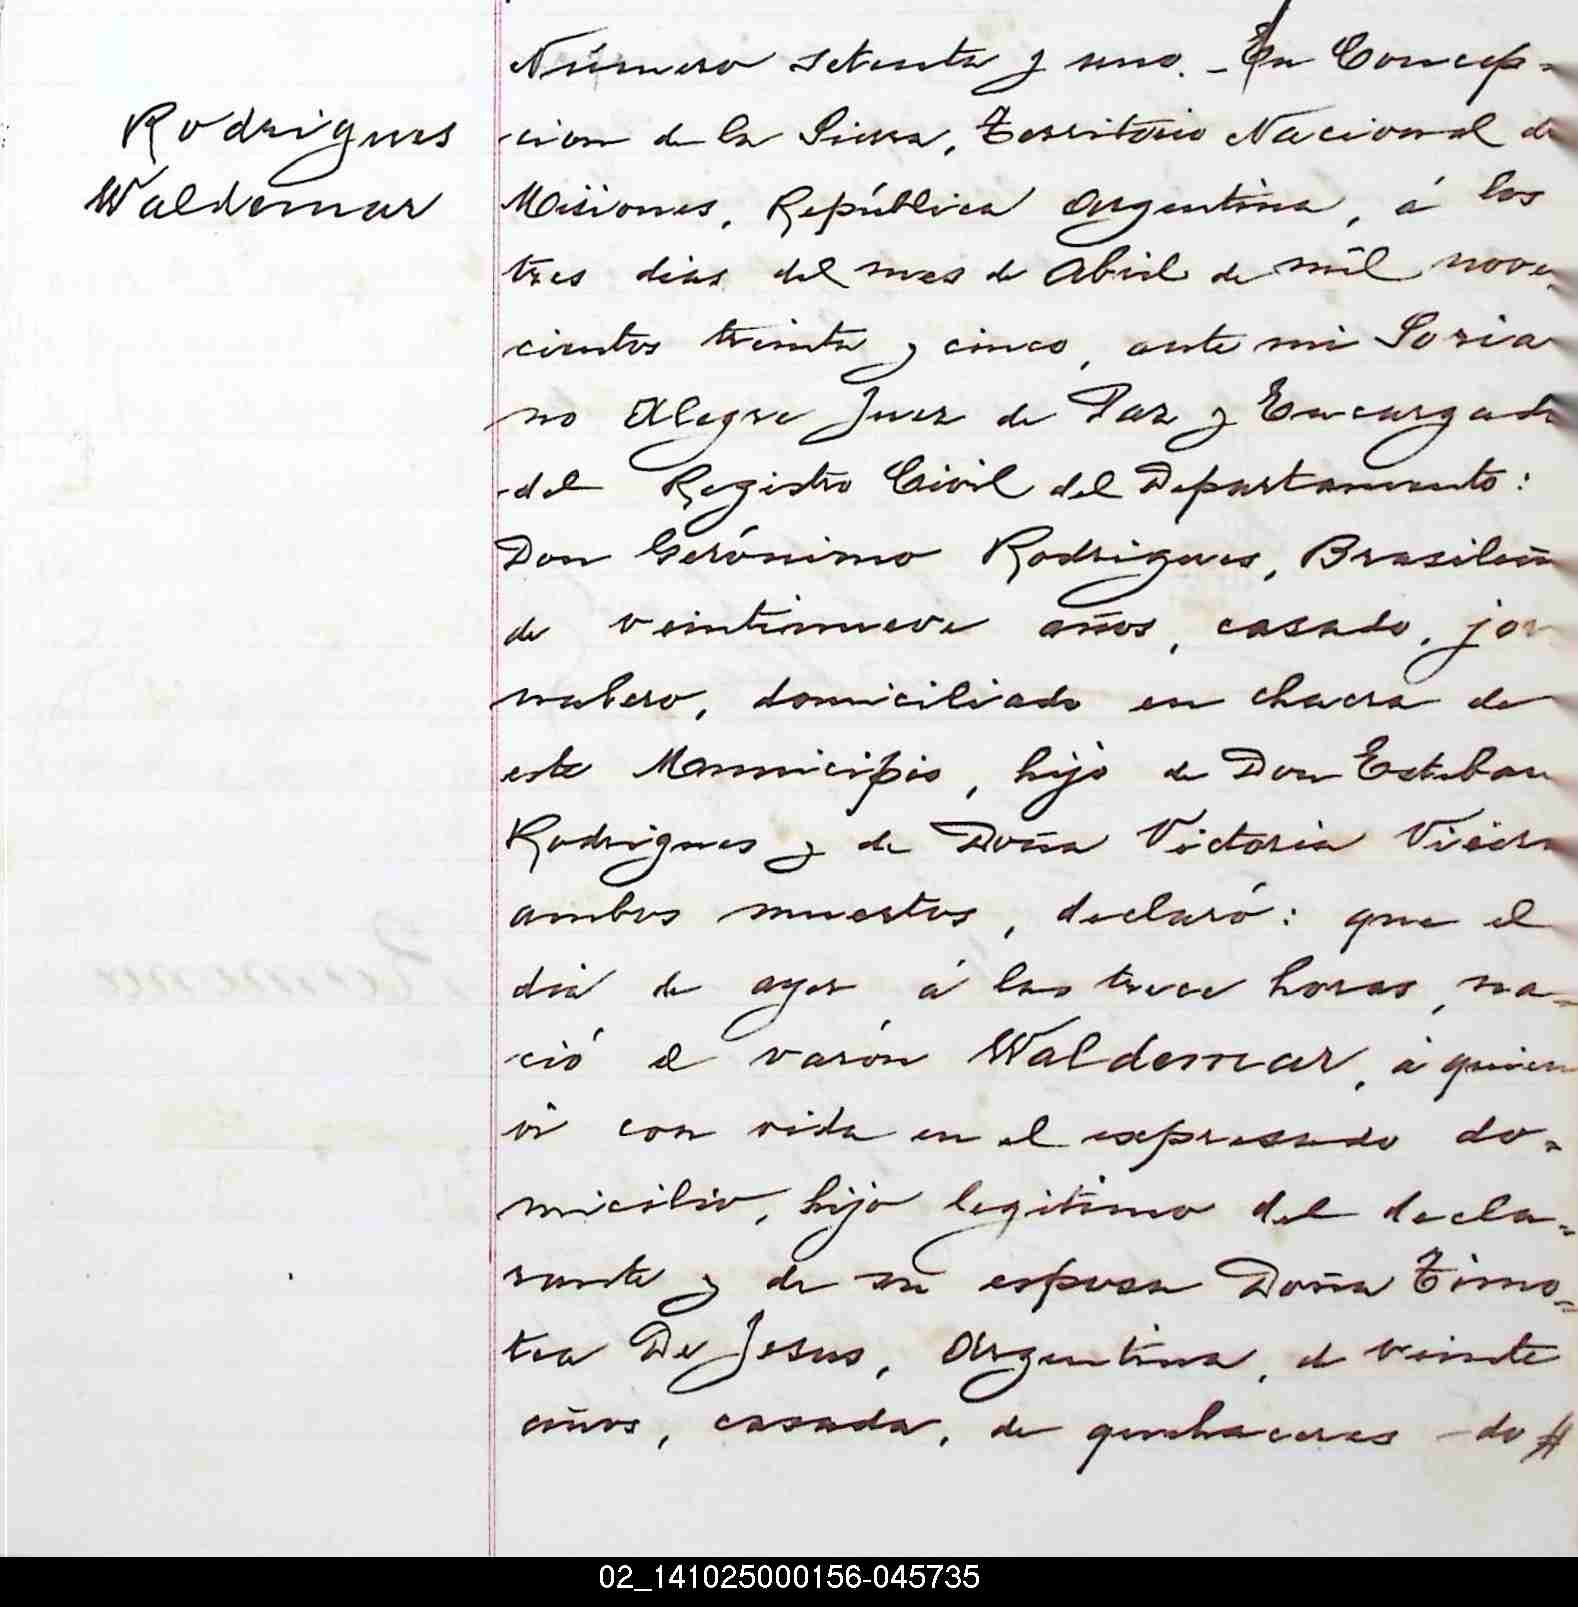 Rodrigues
Waldemar
Número setenta y uno. - En Concep-
cion de la Sierra, Territorio Nacional de
Misiones, República Argentina, á los
tres dias del mes de Abril de mil nove-
cientos treinta y cinco, ante mi Soria
no Alegre Juez de Paz y Encargado
del Registro Civil del Departamento:
Don Gerónimo Rodrigues, Brasileño
de veintinueve años, casado, jor
nalero, domiciliado en chacra de
este Municipio, hijo de Don Esteban
Rodrigues y de Doña Victoria Vieira
ambos muertos, declaró: que el
dia de ayer á las trece horas, na-
ció el varón Waldemar, á quien
vi con vida en el expresado do-
micilio, hijo legitimo del decla-
rante y de su esposa Doña Timo-
tea De Jesus, Argentina, de veinte
años, casada, de quehaceres do #
02_141025000156-045735